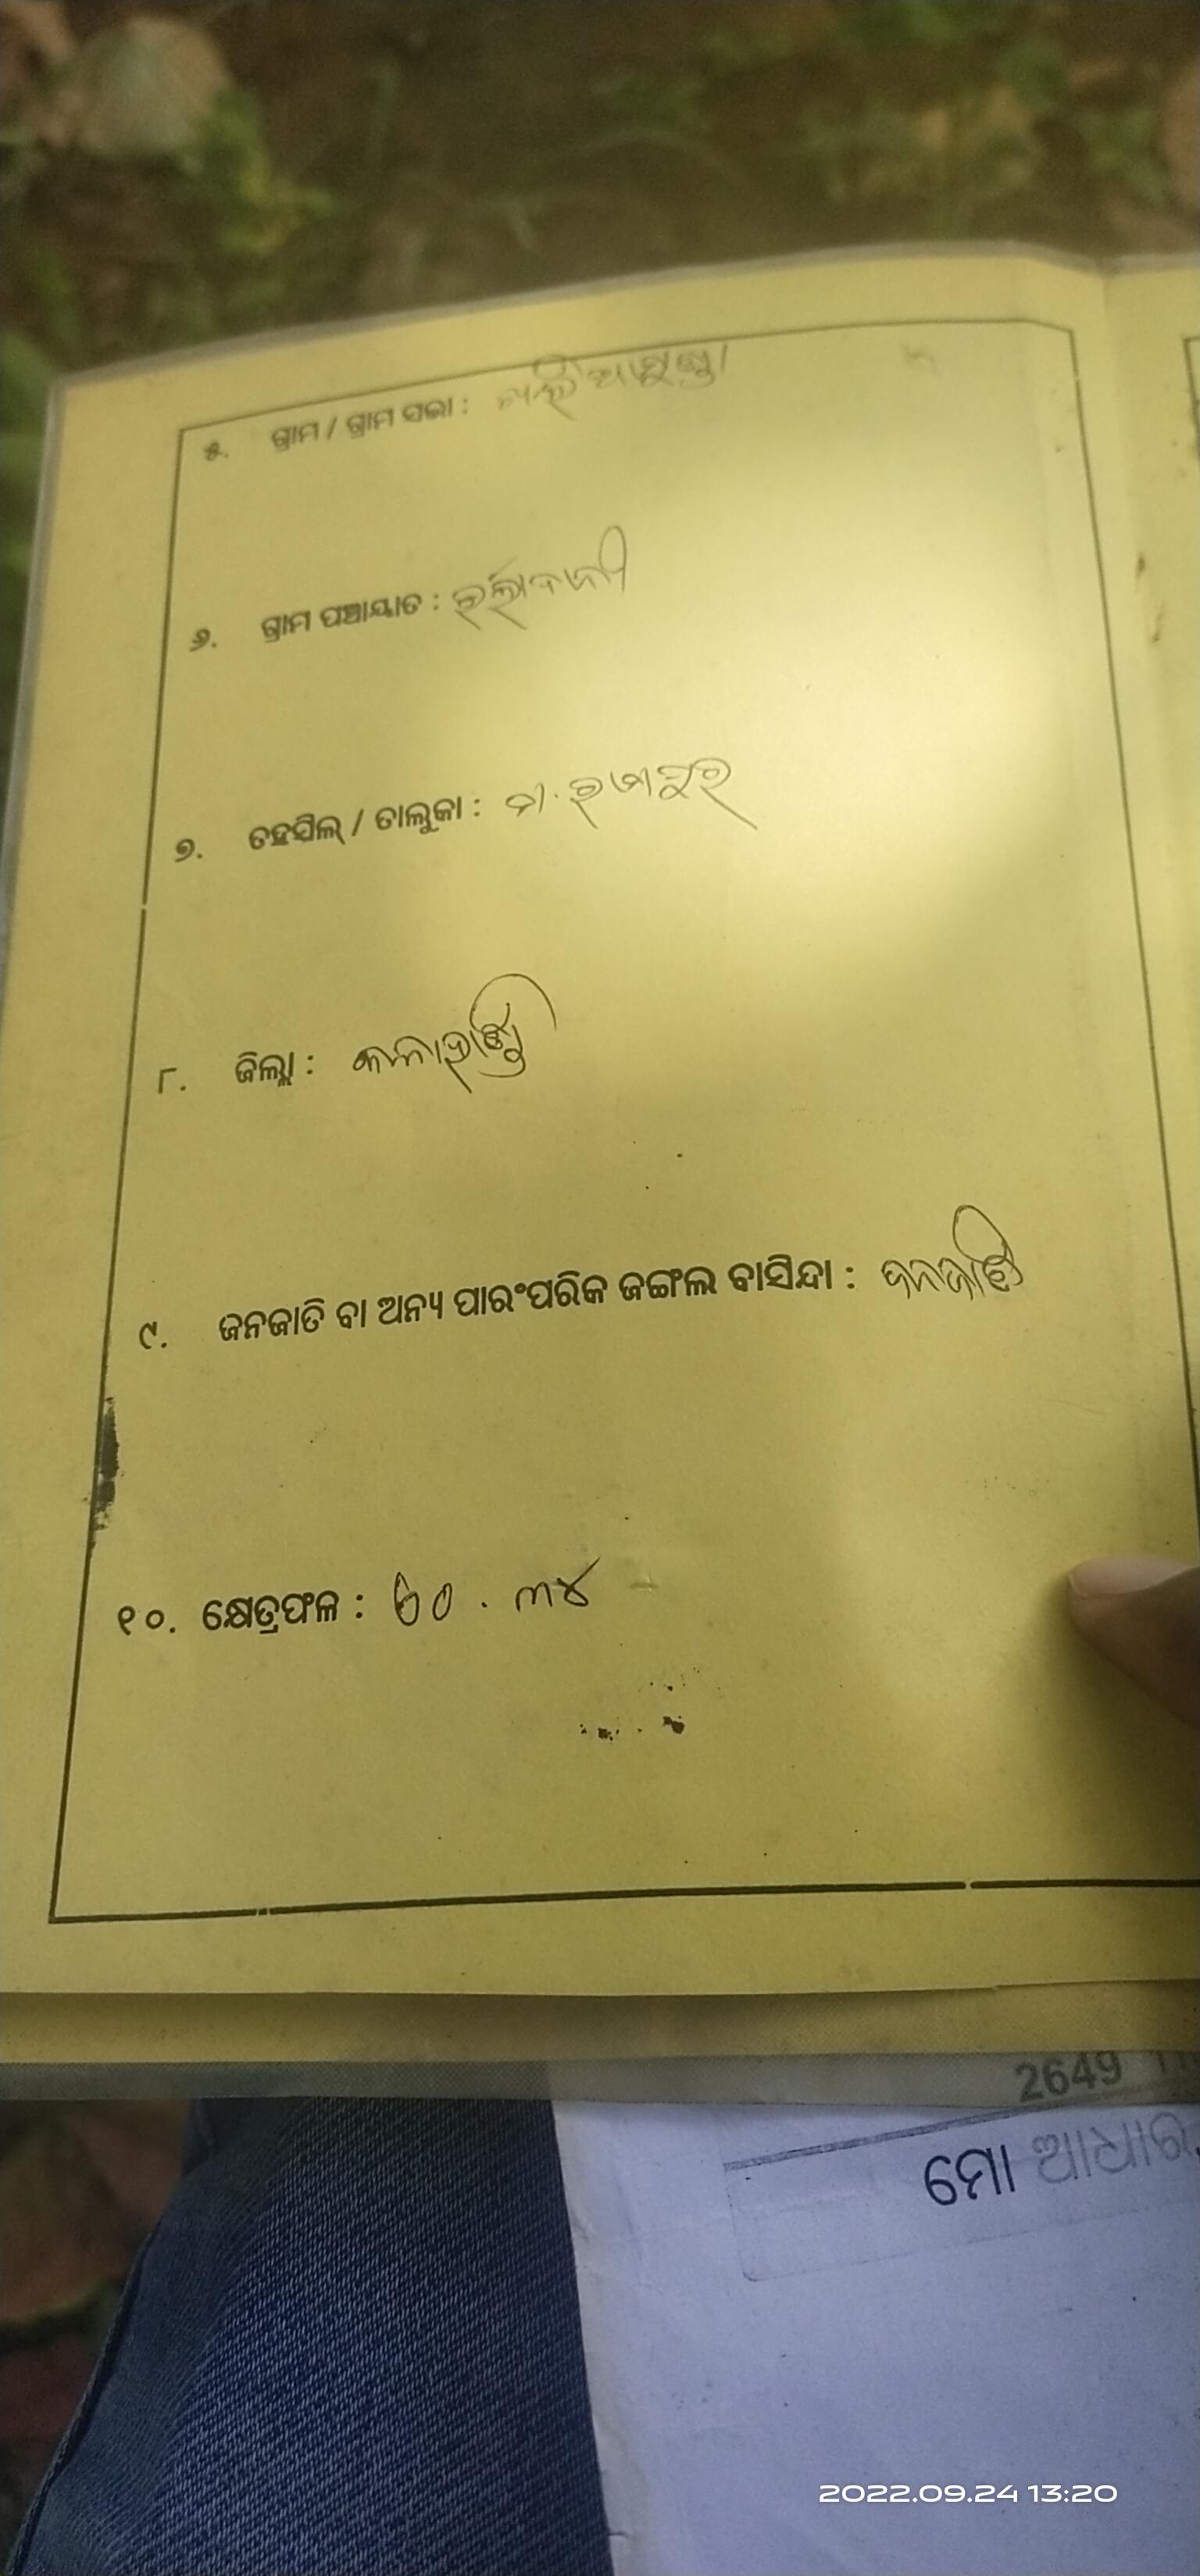 ୫. ଗ୍ରାମ / ଗ୍ରାମ ସଭା :
୬. ଗ୍ରାମ ପଞ୍ଚାୟାତ :
୭. ତହସିଲ୍ / ତାଲୁକା : ମ. ରାମପୁର
୮. ଜିଲ୍ଲା : କଳାହାଣ୍ଡି
୯. ଜନଜାତି ବା ଅନ୍ୟ ପାରଂପରିକ ଜଙ୍ଗଲ ବାସିନ୍ଦା : ଜନଜାତି
୧୦. କ୍ଷେତ୍ରଫଳ :
2649
ମୋ ଆଧାର
2022.09.24 13:20